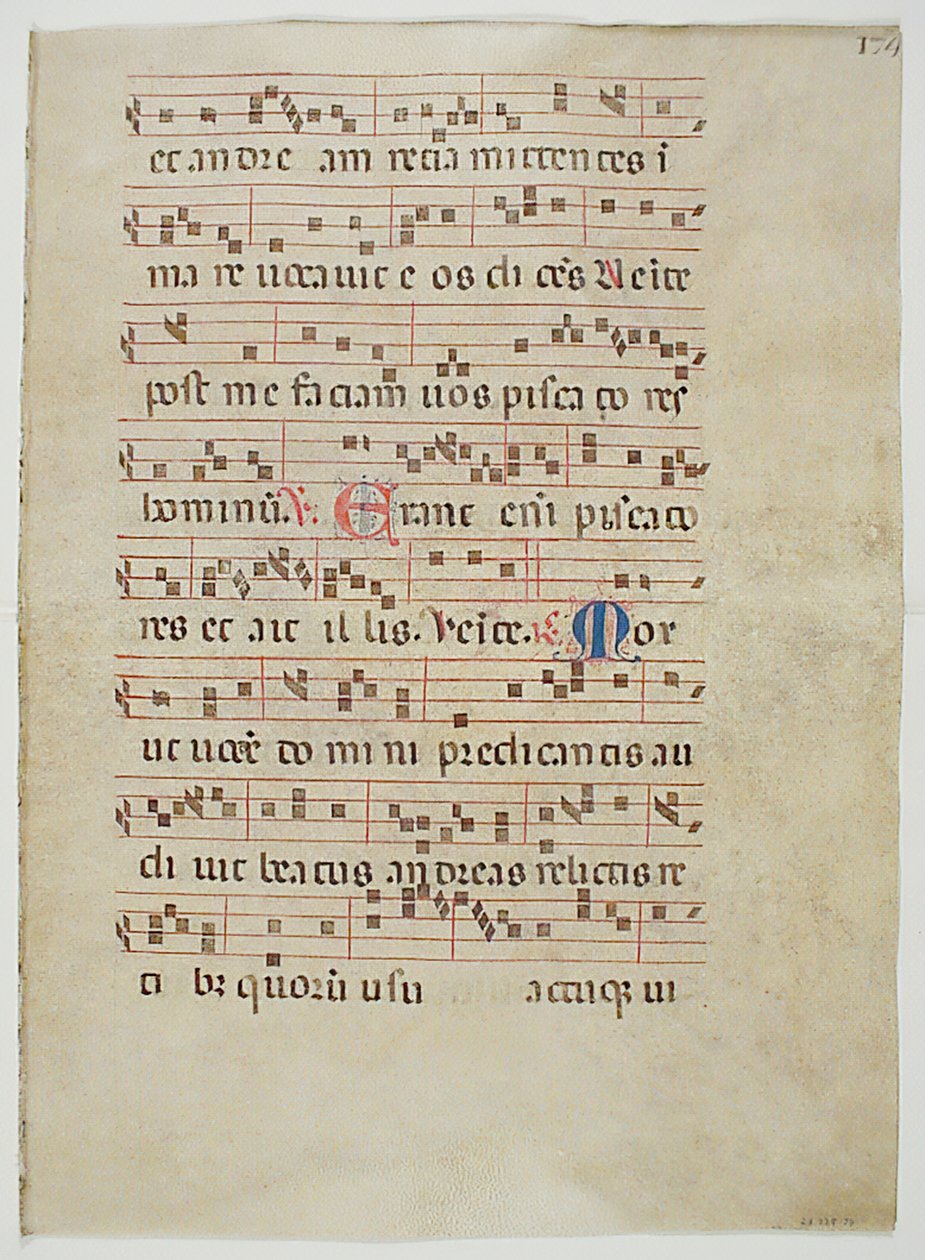 174
et andre am retia mittentes i
ma re uocauit e os di cēs Ueite
post me faciam uos pisca to res
hominū. V. Erant eni piscato
res et ait il lis. Veite. R. Mor
ut uocē do mi ni predicantis au
di uit beatus andreas relictis re
ti bꝫ quorū usu actuqꝫ ui